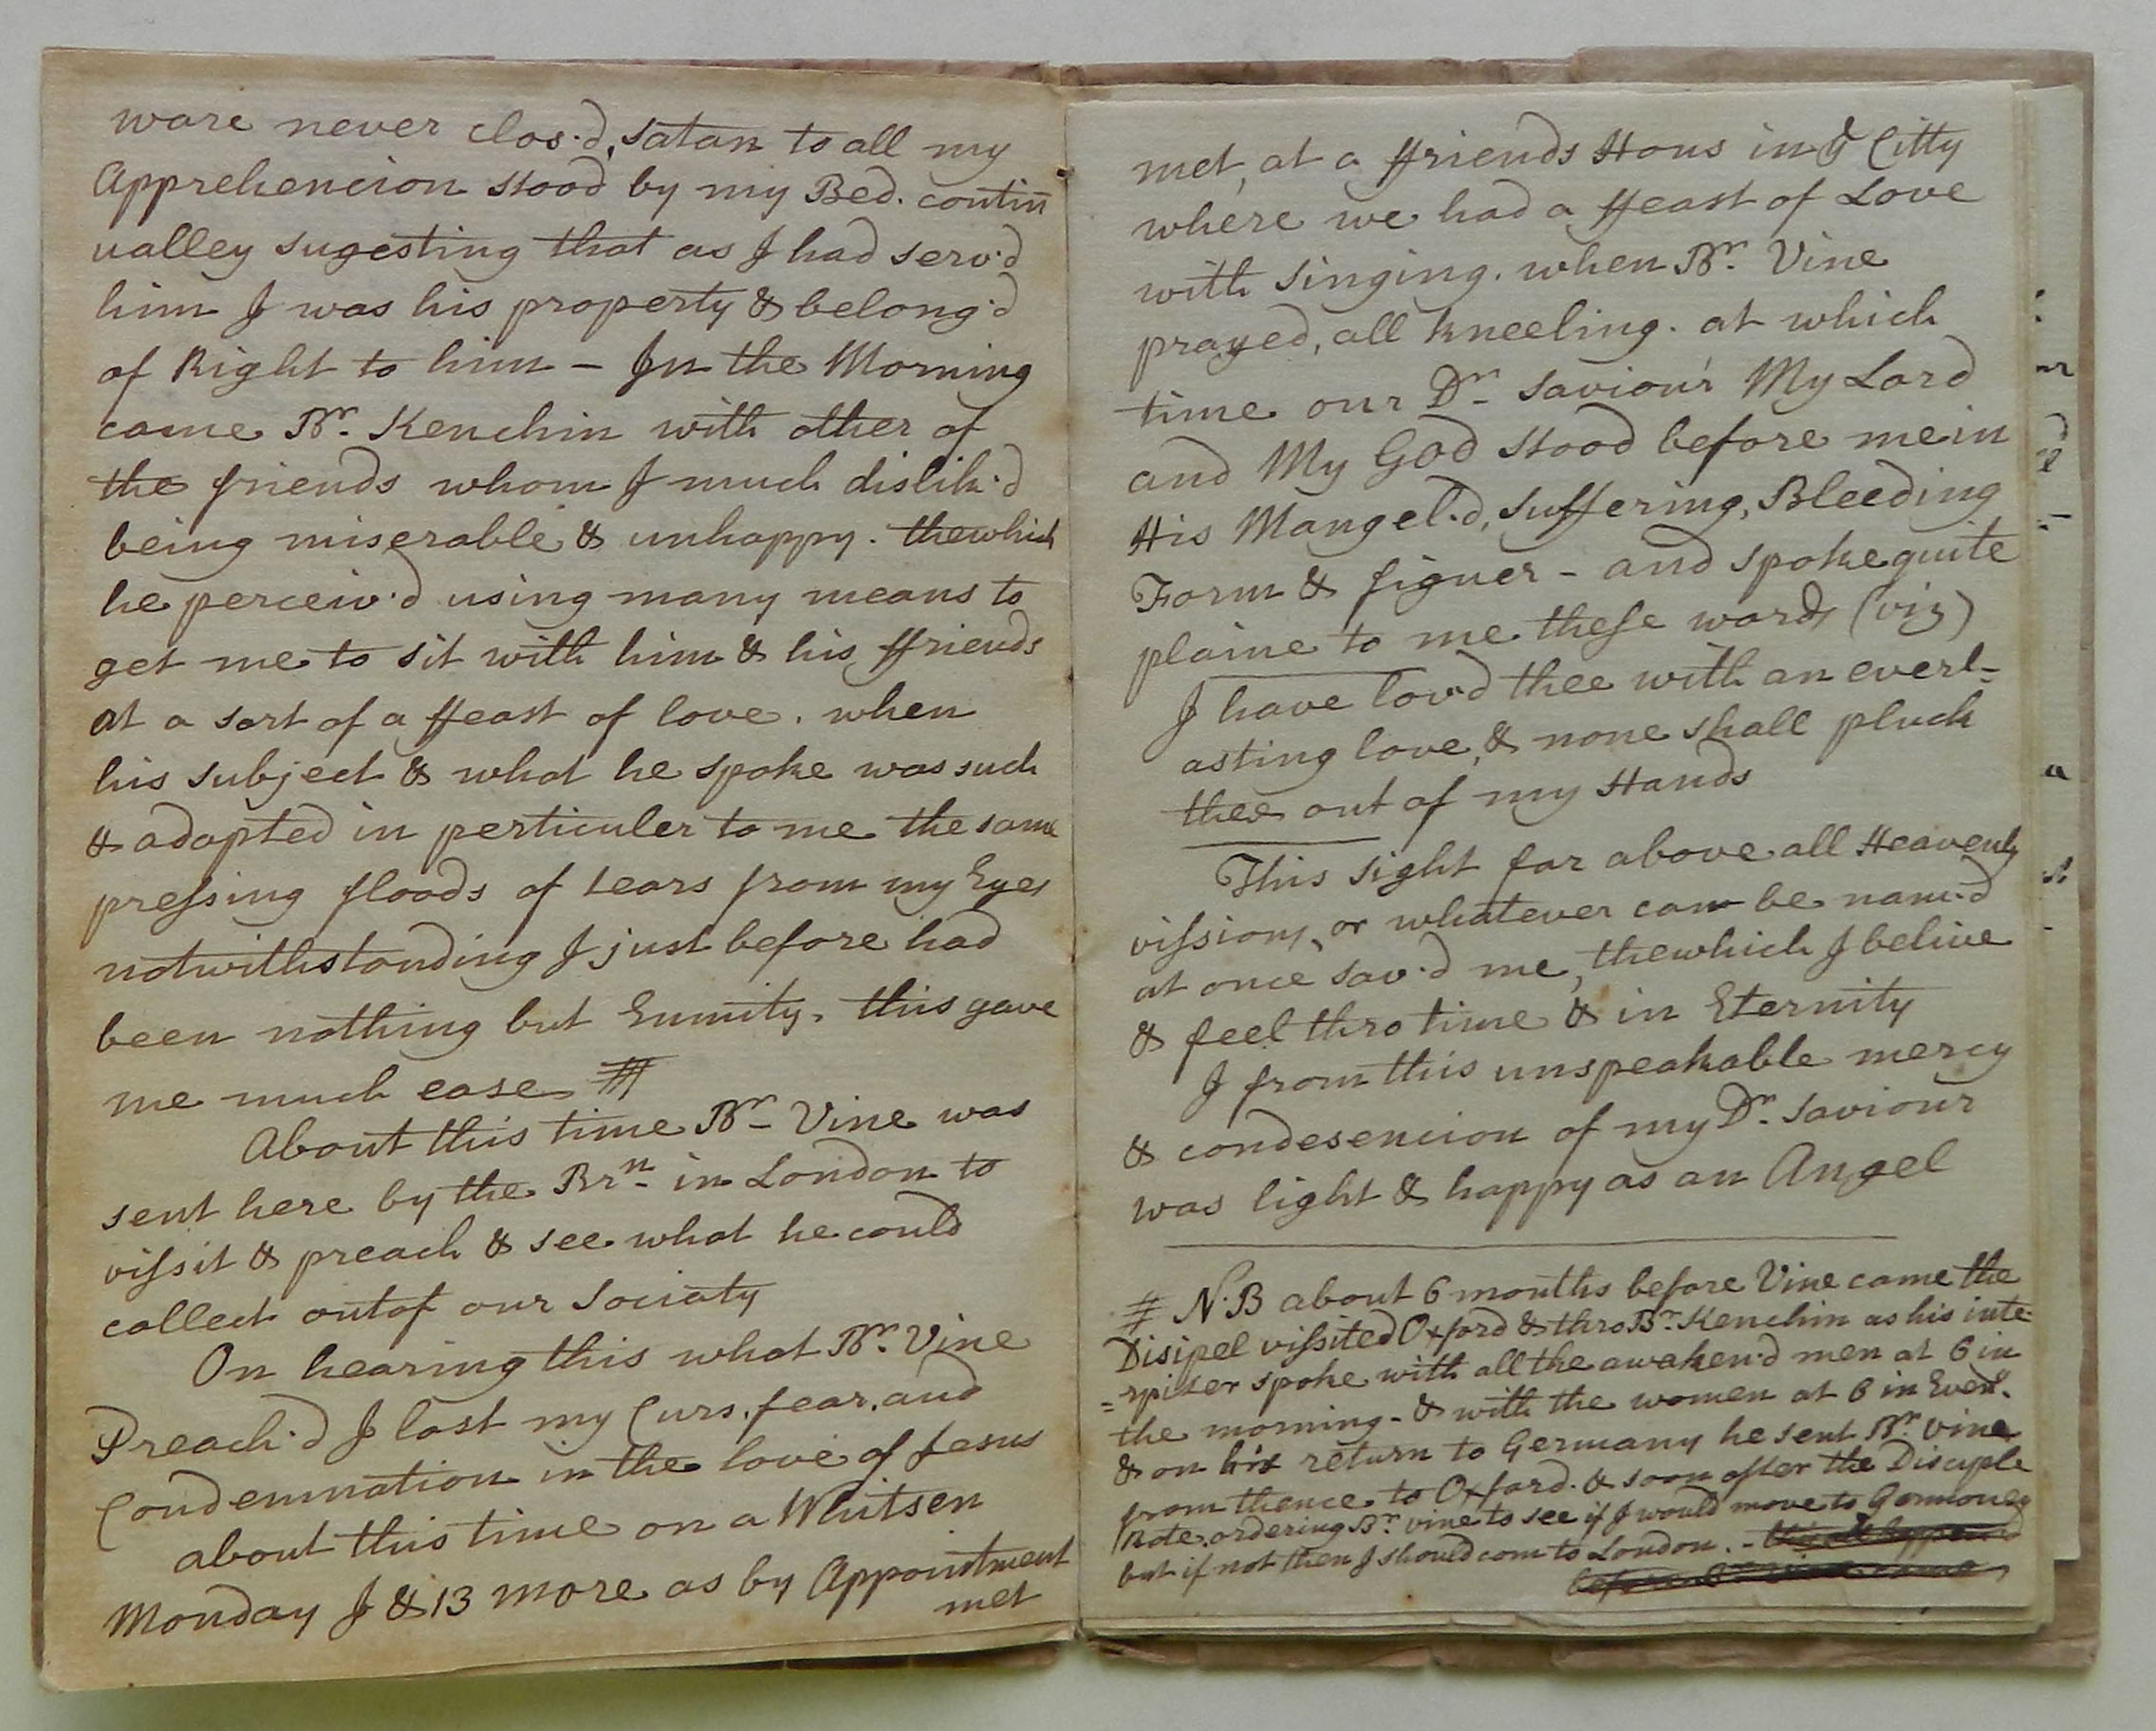 ware never clos'd, Satan to all my
Apprehencion stood by my Bed. contin
ualley sugesting that as I had serv'd
him I was his property & belong'd
of Right to him – In the Morning
came Br. Kenchin with other of
the friends whom I much dislik'd
being miserable & unhappy. thewhich
he perceiv'd using many means to
get me to sit with him & his ffriends
at a sort of a ffeast of love. when
his subject & what he spoke was such
& adapted in perticuler to me the same
preſsing floods of tears from my Eyes
notwithstanding I just before had
been nothing but Enmity. this gave
me much ease #
About this time Br. Vine was
sent here by the Brn. in London to
viſsit & preach & see what he could
collect outof our Sociaty
On hearing this what Br. Vine
Preach'd I lost my Curs. fear. and
Condemnation in the love of Jesus
about this time on a Whitsen
Monday I & 13 more as by Appointment
met
met, at a ffriends Hous in ye Citty
where we had a ffeast of Love
with singing. when Br. Vine
prayed, all kneeling. at which
time our Dr. Saviour My Lord
and My God stood before me in
His Mangel'd, Suffering, Bleeding
Form & figuer – and spoke quite
plaine to me theſe words (viz)
I have lov'd thee with an everl-
asting love, & none shall pluck
thee out of my Hands
This sight far above all Heavenly
viſsions, or whatever can be nam'd
at once sav'd me, thewhich I belive
& feel thro time & in Eternity
I from this unspeakable mercy
& condesencion of my Dr. Saviour
was light & happy as an Angel
# N.B about 6 months before Vine came the
Disipel viſsited Oxford & thro Br. Kenchin as his inte=
=rpiter spoke with all the awaken'd men at 6 in
the morning - & with the women at 6 in Even.
& on his return to Germany he sent Br. Vine
from thence to Oxford. & soon after the Disciple
Rote. ordering Br. Vine to see if I would move to Germoney
but if not then I should com to London. - this all happen'd
before Br. Vine came